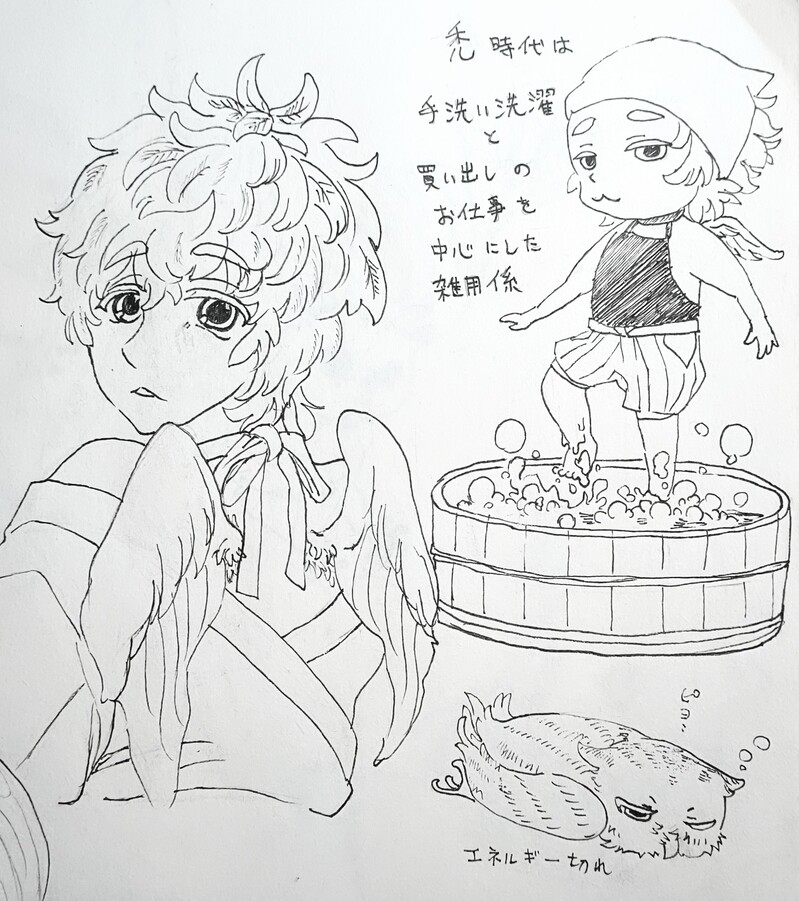 禿時代は
手洗い洗濯
と
買い出しの
お仕事を
中心にした
雑用係
エネルギー切れ